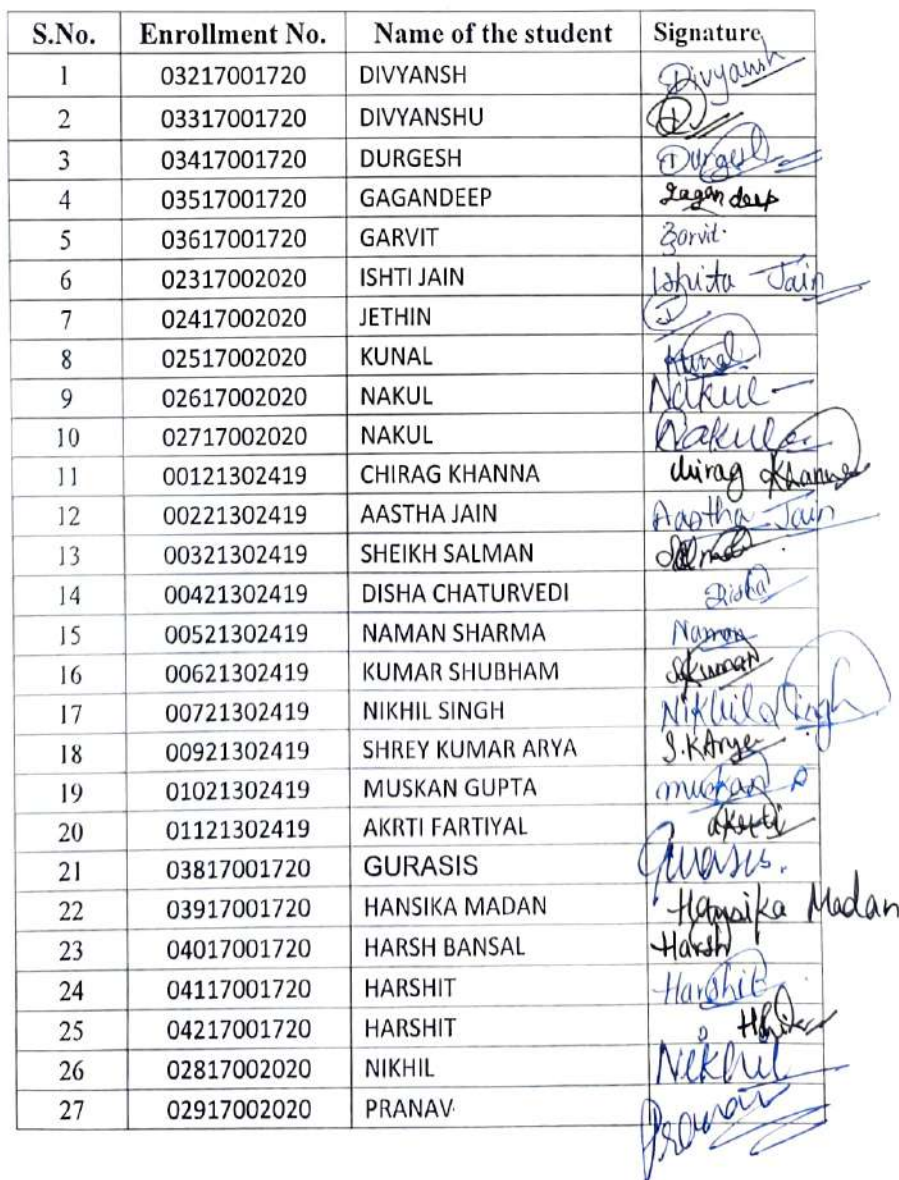 S.No. Enrollment No. Name of the student Signature
1 03217001720 DIVYANSH Divyansh
2 03317001720 DIVYANSHU D
3 03417001720 DURGESH Durgesh
4 03517001720 GAGANDEEP gagan deep
5 03617001720 GARVIT Garvit
6 02317002020 ISHTI JAIN Ishita Jain
7 02417002020 JETHIN J
8 02517002020 KUNAL Kunal
9 02617002020 NAKUL Nakul
10 02717002020 NAKUL Nakul
11 00121302419 CHIRAG KHANNA chirag Khanna
12 00221302419 AASTHA JAIN Aastha Jain
13 00321302419 SHEIKH SALMAN Salman
14 00421302419 DISHA CHATURVEDI Disha
15 00521302419 NAMAN SHARMA Naman
16 00621302419 KUMAR SHUBHAM
17 00721302419 NIKHIL SINGH Nikhil Singh
18 00921302419 SHREY KUMAR ARYA S.K Arya
19 01021302419 MUSKAN GUPTA muskan
20 01121302419 AKRTI FARTIYAL
21 03817001720 GURASIS Gurasis.
22 03917001720 HANSIKA MADAN Hansika Madan
23 04017001720 HARSH BANSAL Harsh
24 04117001720 HARSHIT Harshit
25 04217001720 HARSHIT
26 02817002020 NIKHIL Nikhil
27 02917002020 PRANAV Pranav